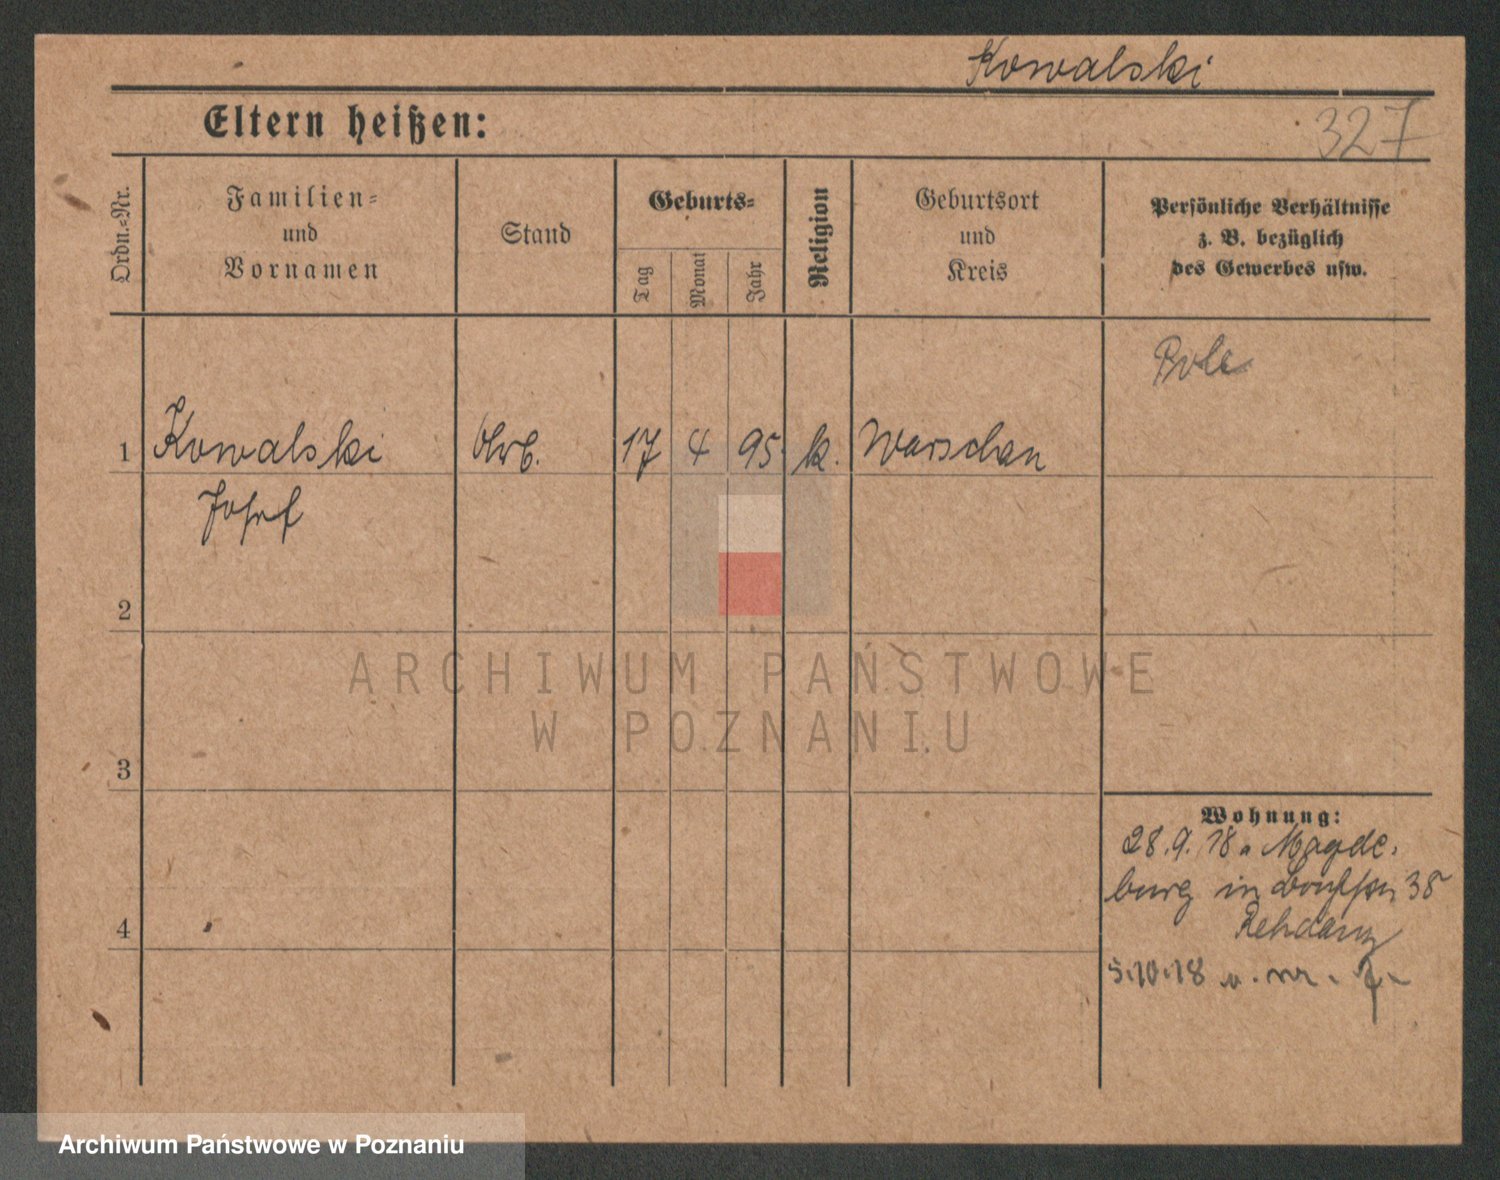 Kowalski
Eltern heißen:
327
Ordn.=Nr.
Familien=
und
Vornamen
Stand
Geburts=
Tag
Monat
Jahr
Religion
Geburtsort
und
Kreis
Persönliche Verhältnisse
z. B. bezüglich
des Gewerbes usw.
Pole
1 Kowalski Arb. 17 4 95. k. Warschau
Josef
2
3
4
Wohnung:
28. 9. 18 Magde-
burg in 38
Rehdanz
5.10.18
ARCHIWUM PAŃSTWOWE
W POZNANIU
Archiwum Państwowe w Poznaniu